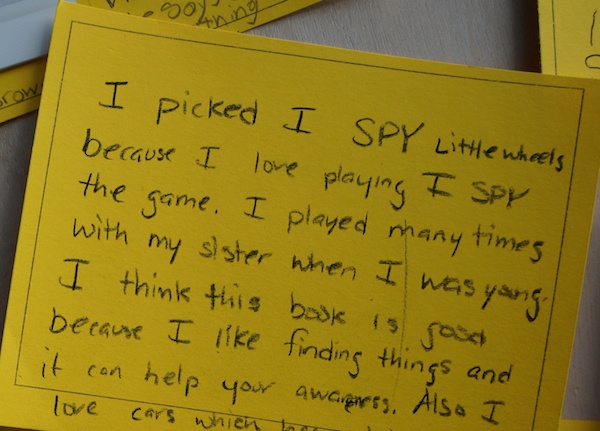 thing
row
I picked I SPY Little wheels
because I love playing I SPY
the game. I played many times
with my sister when I was young.
I think this book is good
because I like finding things and
it can help your awareness. Also I
love cars which